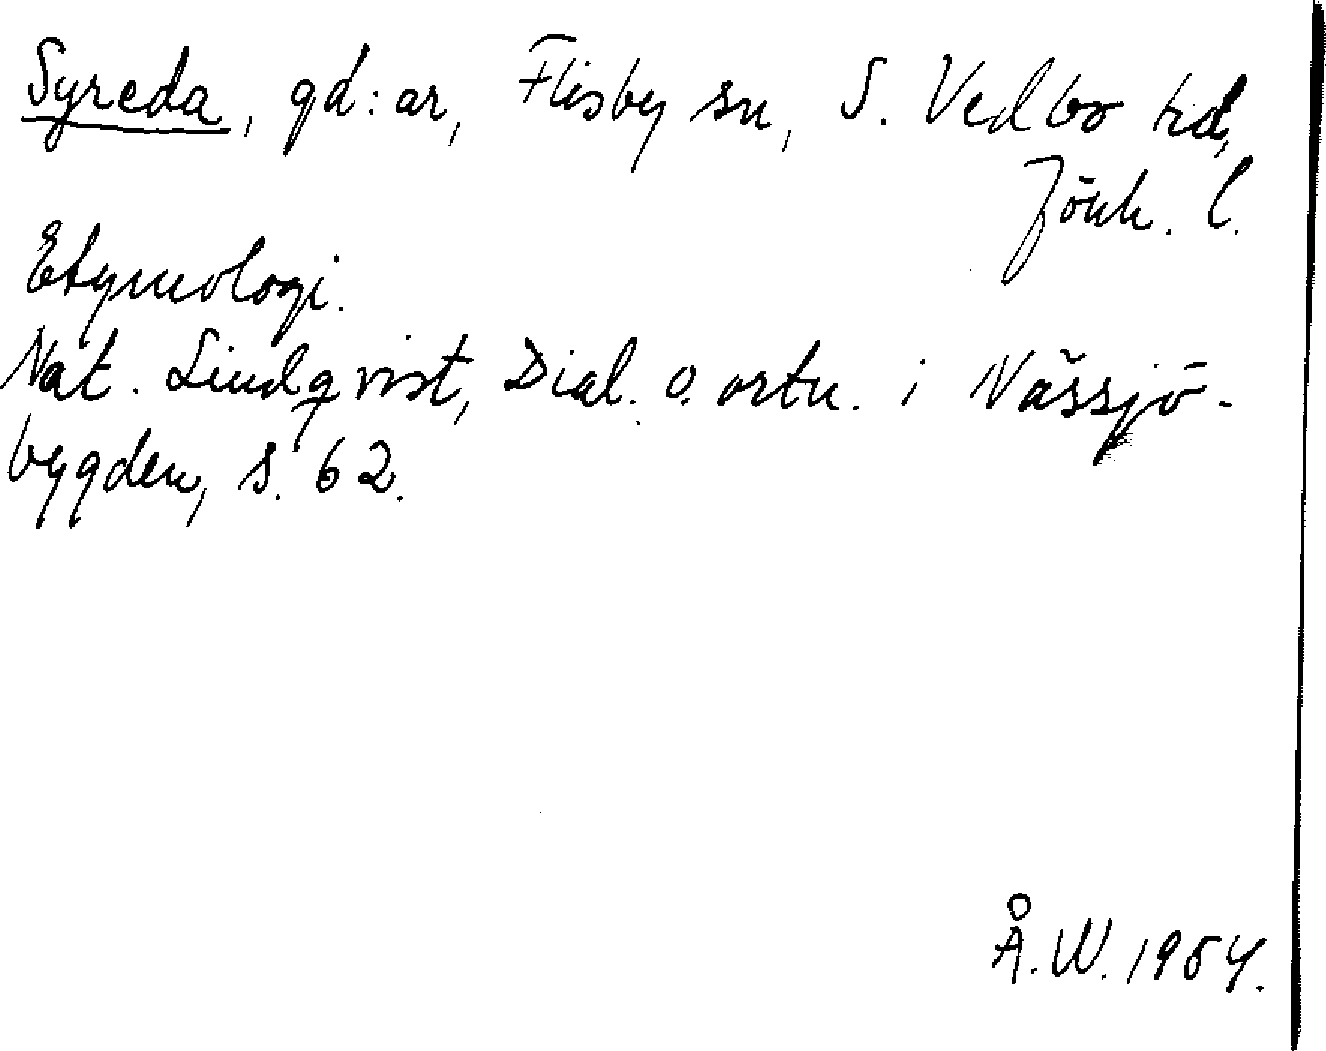 Syreda, gd:ar, Flisby sn, S. Vedbo hd,
Jönk. l.
Etymologi.
Nat. Lindqvist, Dial. o. ortn. i Nässjö-
bygden, s. 62.
Å.W. 1954.